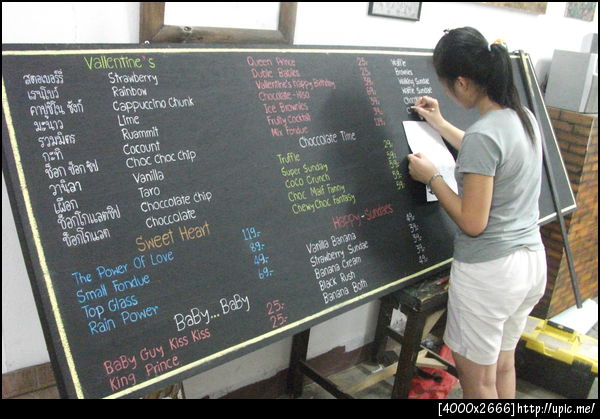 Vallentine's
สตอเบอร์รี่ Strawberry
เรนโบว์ Rainbow
คาปูชิโน ชังก์ Cappuccino Chunk
มะนาว Lime
รวมมิตร Ruammit
กะทิ Cocount
ช็อก ช็อก ชิป Choc choc chip
วานิลา Vanilla
เผือก Taro
ช็อกโกแลตชิป Chocolate chip
ช็อกโกแลต Chocolate
Sweet Heart
The Power Of Love 119.-
Small Fondue 89.-
Top Glass 49.-
Rain Power 69.-
BaBy...BaBy
BaBy Guy Kiss Kiss 25.-
King Prince 25.-
Queen Prince
Duble Babies
Vallentine's Happy Birthday
Chocolate-Miso
Ice Brownies
Fruity Cocktail
Mix Fondue
Choccolate Time
Truffle
Super Sunday
Coco Crunch
Choc Malf Fanny
Chewy Choc Fantasy
Happy-Sundaes
Vanilla Banana
Strawberry Sundae
Banana Cream
Black Rush
Banana Both
Waffle
Brownies
Walking Sundae
Waffle Sundae
[4000x2666]http://upic.me/